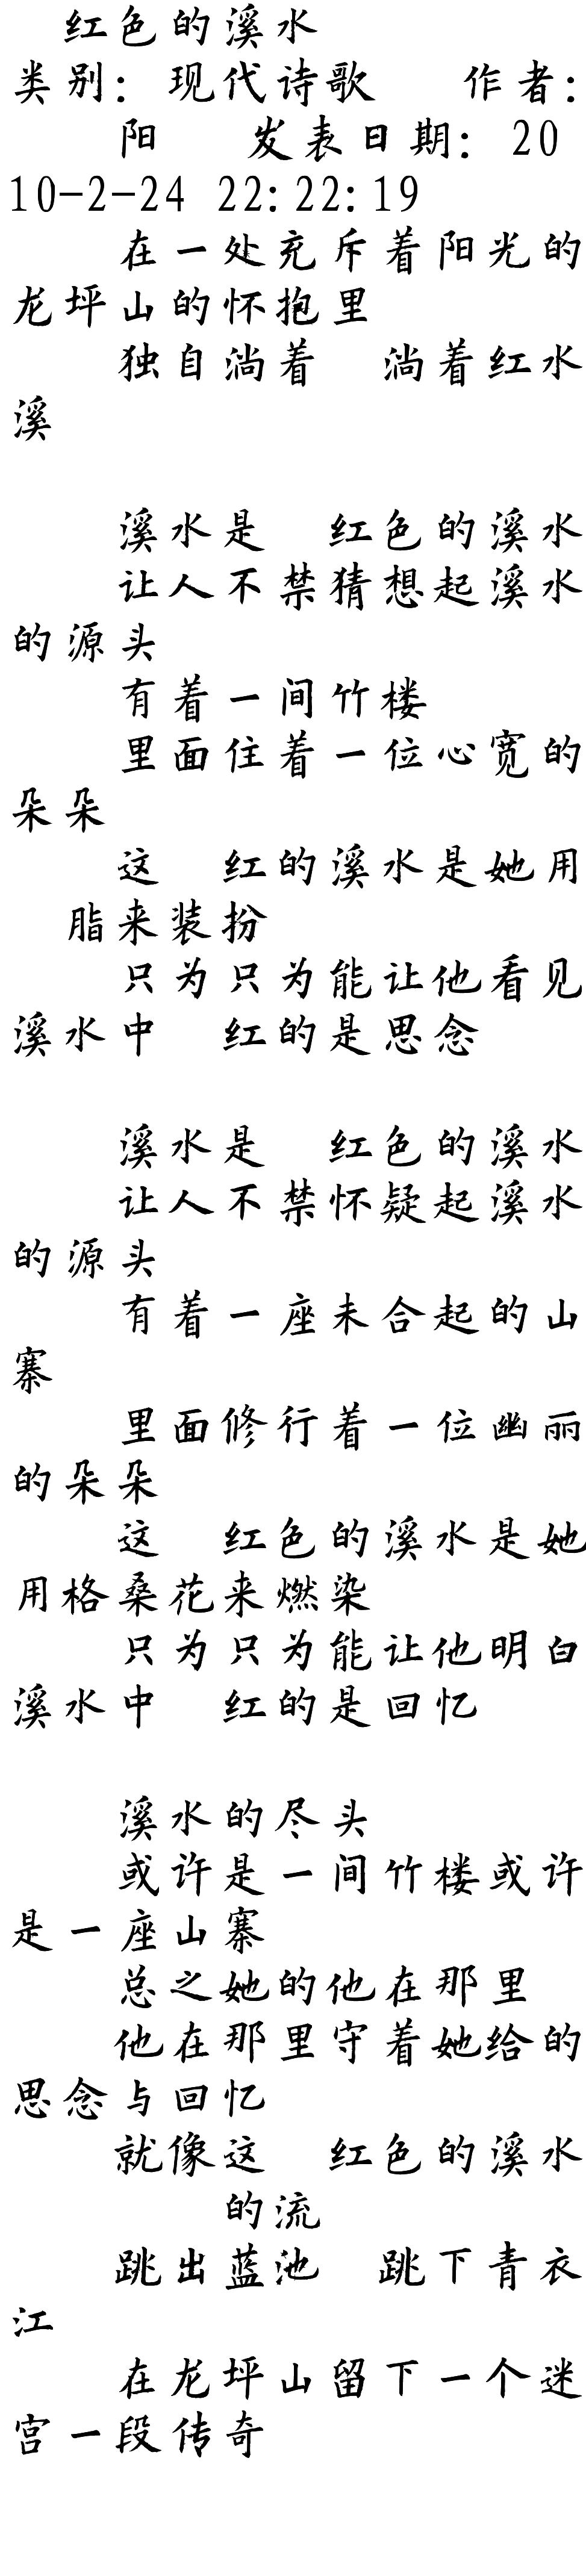 红色的溪水
类别：现代诗歌 作者：
阳 发表日期：20
10-2-24 22:22:19
在一处充斥着阳光的
龙坪山的怀抱里
独自淌着 淌着红水
溪
溪水是 红色的溪水
让人不禁猜想起溪水
的源头
有着一间竹楼
里面住着一位心宽的
朵朵
这 红的溪水是她用
脂来装扮
只为只为能让他看见
溪水中 红的是思念
溪水是 红色的溪水
让人不禁怀疑起溪水
的源头
有着一座未合起的山
寨
里面修行着一位幽丽
的朵朵
这 红色的溪水是她
用格桑花来燃染
只为只为能让他明白
溪水中 红的是回忆
溪水的尽头
或许是一间竹楼或许
是一座山寨
总之她的他在那里
他在那里守着她给的
思念与回忆
就像这 红色的溪水
的流
跳出蓝池 跳下青衣
江
在龙坪山留下一个迷
宫一段传奇